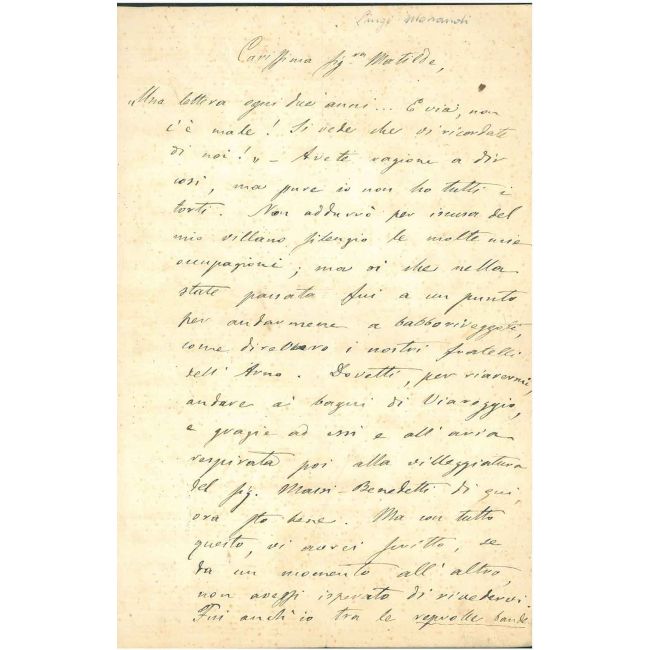 Luigi Morandi
Carissima Sig.ra Matilde,
„Una lettera ogni due anni... E via, non
c'è male! Si vede che vi ricordate
di noi!„ - Avete ragione a dir
così, ma pure io non ho tutti i
torti. Non addurrò per iscusa del
mio villano silenzio le molte mie
occupazioni; ma sì che nella
state passata fui a un punto
per andarmene a babboriveggoli,
come direbbero i nostri fratelli
dell'Arno. Dovetti, per riavermi,
andare ai bagni di Viareggio,
e grazie ad essi e all'aria
respirata poi alla villeggiatura
del Sig. Massi-Benedetti di qui,
ora sto bene. Ma con tutto
questo, vi avrei scritto, se
da un momento all'altro,
non avessi isperato di rivedervi.
Fui anch'io tra le repvolte bande